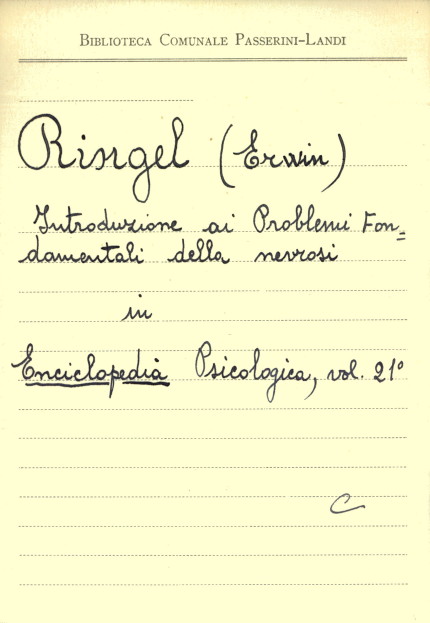 Biblioteca Comunale Passerini-Landi
Ringel (Erwin)
Introduzione ai Problemi Fon=
damentali della nevrosi
in
Enciclopedia Psicologica, vol. 21º
C